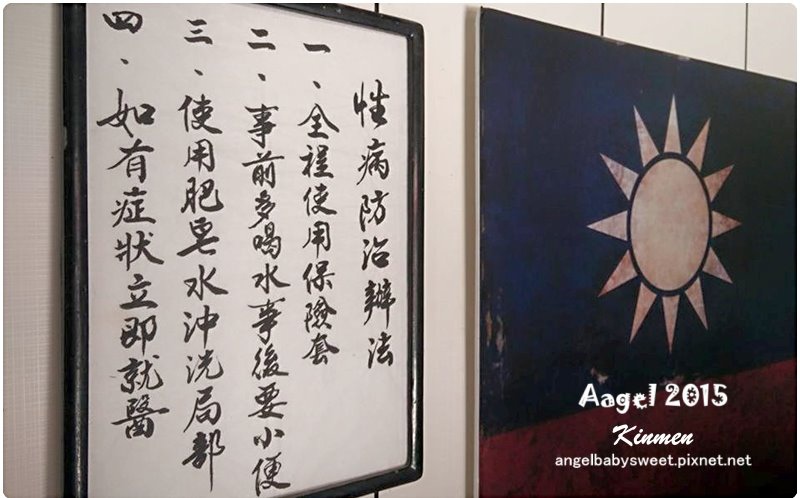 性病防治辦法
一、全程使用保險套
二、事前多喝水事後要小便
三、使用肥皂水沖洗局部
四、如有症狀立即就醫
Aagel 2015
Kinmen
angelbabysweet.pixnet.net